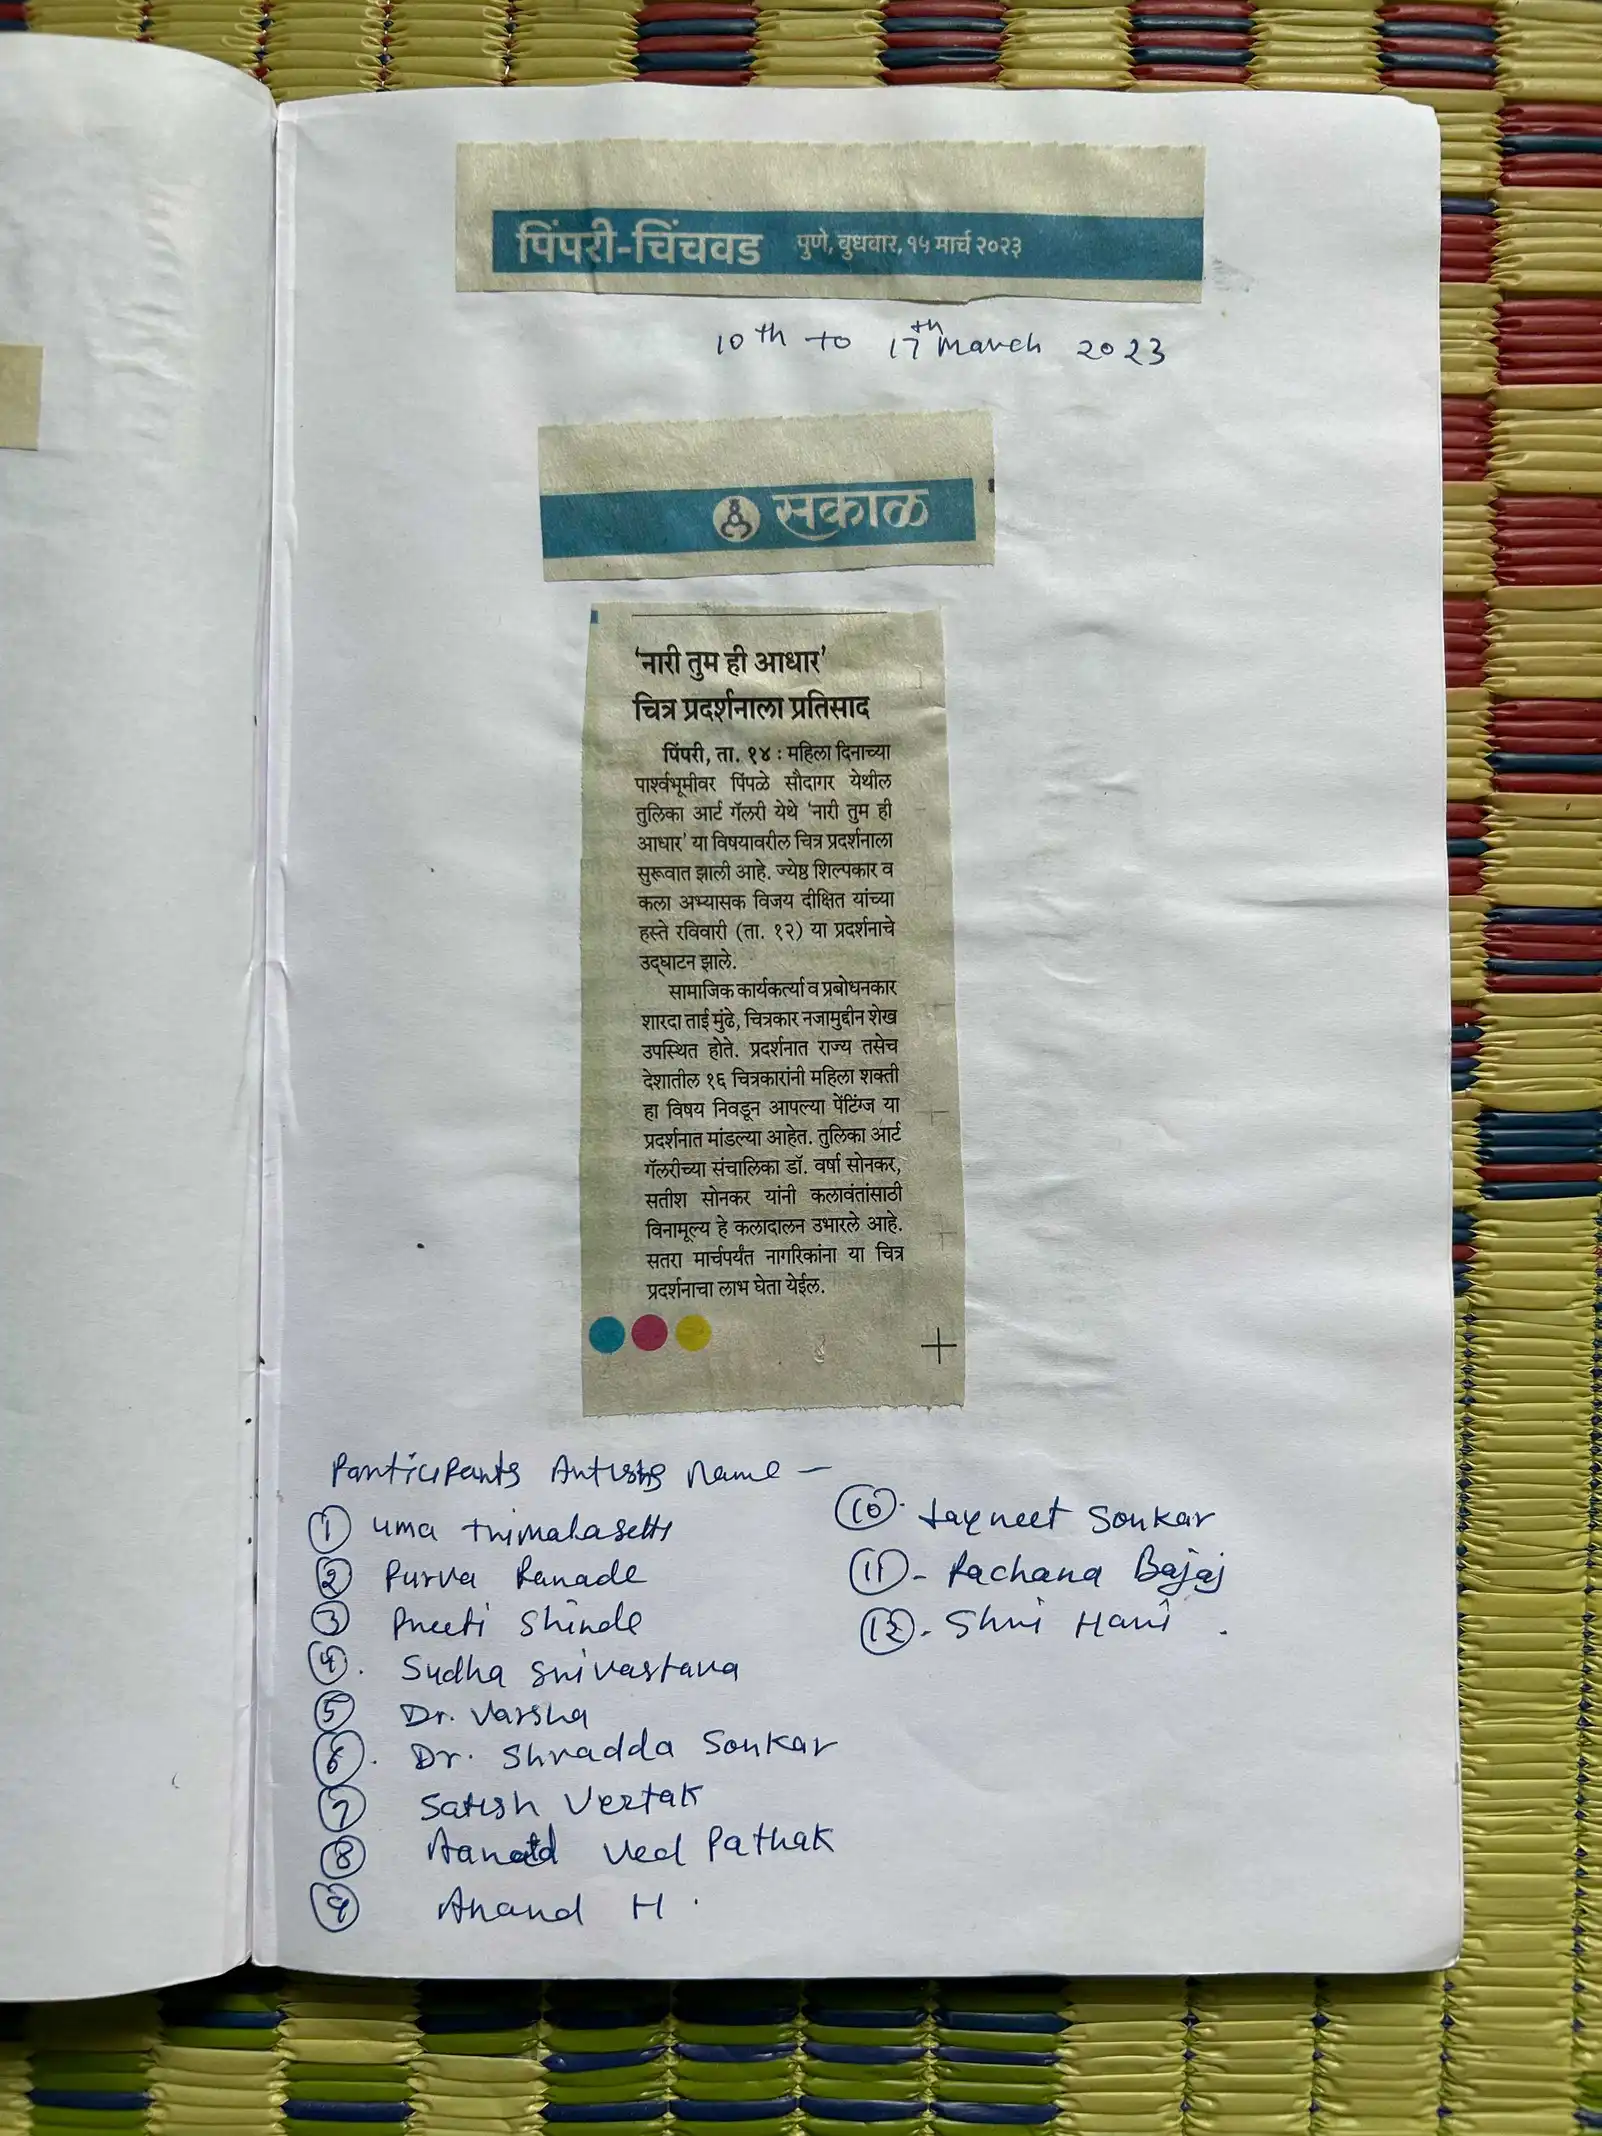 पिंपरी-चिंचवड पुणे, बुधवार, १५ मार्च २०२३
10th to 17th March 2023
सकाळ
'नारी तुम ही आधार'
चित्र प्रदर्शनाला प्रतिसाद
पिंपरी, ता. १४ : महिला दिनाच्या
पार्श्वभूमीवर पिंपळे सौदागर येथील
तुलिका आर्ट गॅलरी येथे 'नारी तुम ही
आधार' या विषयावरील चित्र प्रदर्शनाला
सुरूवात झाली आहे. ज्येष्ठ शिल्पकार व
कला अभ्यासक विजय दीक्षित यांच्या
हस्ते रविवारी (ता. १२) या प्रदर्शनाचे
उद्‍घाटन झाले.
सामाजिक कार्यकर्त्या व प्रबोधनकार
शारदा ताई मुंढे, चित्रकार नजामुद्दीन शेख
उपस्थित होते. प्रदर्शनात राज्य तसेच
देशातील १६ चित्रकारांनी महिला शक्ती
हा विषय निवडून आपल्या पेंटिंग्ज या
प्रदर्शनात मांडल्या आहेत. तुलिका आर्ट
गॅलरीच्या संचालिका डॉ. वर्षा सोनकर,
सतीश सोनकर यांनी कलावंतांसाठी
विनामूल्य हे कलादालन उभारले आहे.
सतरा मार्चपर्यंत नागरिकांना या चित्र
प्रदर्शनाचा लाभ घेता येईल.
Participants Artists Name —
① Uma
② Purva Ranade
③ Preeti Shinde
④. Sudha Srivastava
⑤ Dr. Varsha
⑥. Dr. Shradda Sonkar
⑦ Satish Vertak
⑧ Ved Pathak
⑨ Anand H.
⑩. Jayneet Sonkar
⑪- Rachana Bajaj
⑫. Shri Hari.